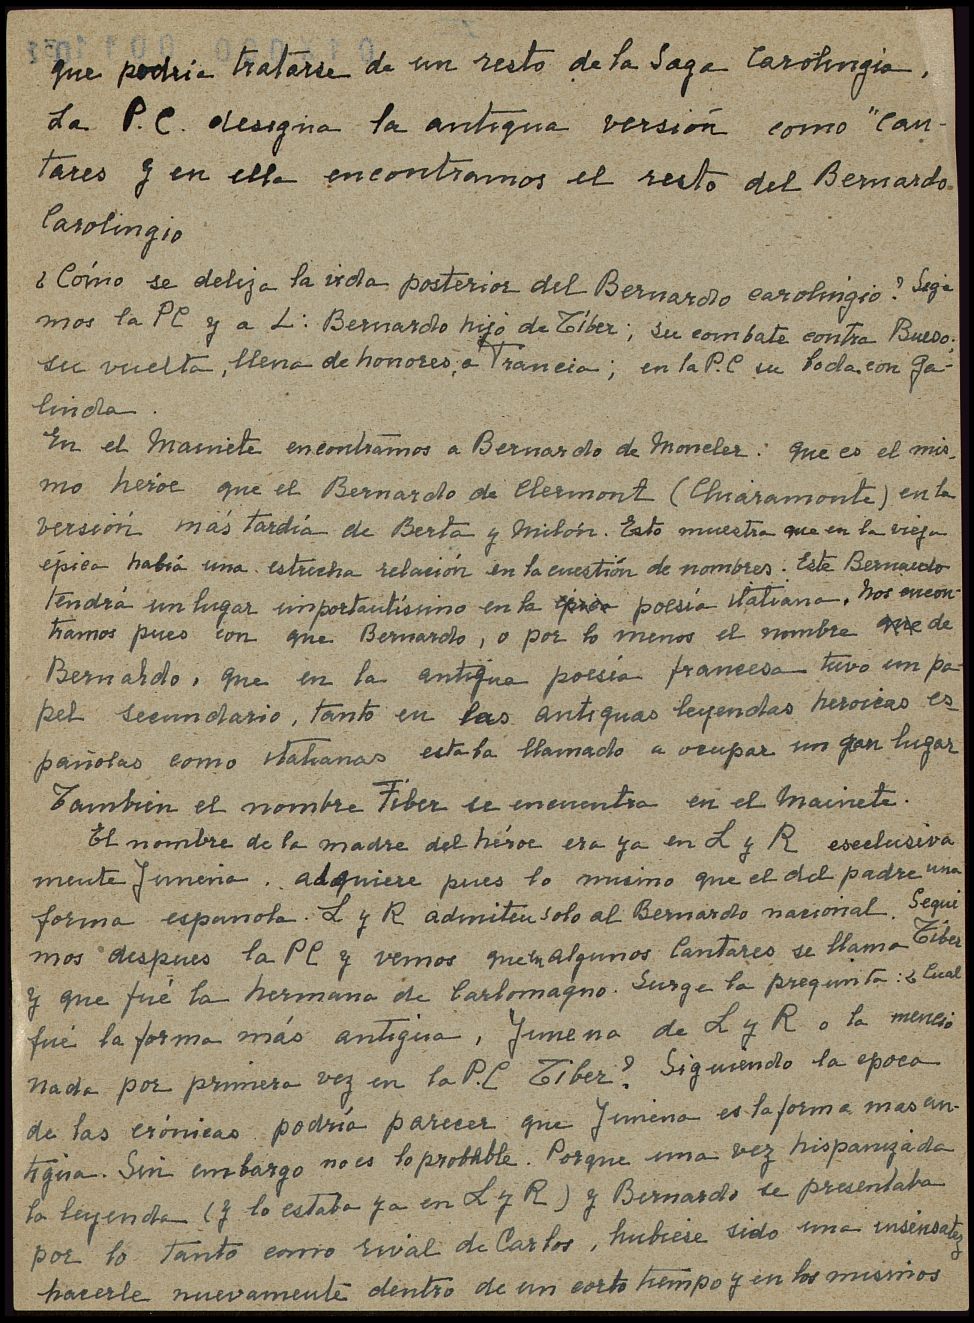 que podria tratarse de un resto de la Saga Carolingia,
La P.C. designa la antigua versión como "Can-
tares y en ella encontramos el resto del Bernardo
Carolingio
¿Cómo se deliza la vida posterior del Bernardo carolingio? Siga
mos la PC y a L: Bernardo hijo de Tíber; su combate contra Bueso;
su vuelta, llena de honores, a Francia; en la P.C su boda con Ga-
linda.
En el Mainete encontramos a Bernardo de Moncler: que es el mis-
mo héroe que el Bernardo de Clermont (Chiaramonte) en la
versión más tardía de Berta y Milón. Esto muestra que en la vieja
épica había una estrecha relación en la cuestión de nombres. Este Bernardo
tendrá un lugar importantísimo en la poesía italiana. Nos encon-
tramos pues con que Bernardo, o por lo menos el nombre de
Bernardo, que en la antigua poesía francesa tuvo un pa-
pel secundario, tanto en las antiguas leyendas heroicas es-
pañolas como italianas estaba llamado a ocupar un gran lugar
También el nombre Tiber se encuentra en el Mainete.
El nombre de la madre del héroe era ya en L y R esclusiva
mente Jimena. adquiere pues lo mismo que el del padre una
forma española. L y R admiten solo al Bernardo nacional. Segui
mos despues la PC y vemos que en algunos Cantares se llama Tiber
y que fué la hermana de Carlomagno. Surge la pregunta: ¿Cual
fué la forma más antigua, Jimena de L y R o la mencio
nada por primera vez en la P.C Tiber? Siguiendo la epoca
de las crónicas podría parecer que Jimena es la forma mas an-
tigua. Sin embargo no es lo probable. Porque una vez hispanizada
la leyenda (y lo estaba ya en L y R) y Bernardo se presentaba
por lo tanto como rival de Carlos, hubiese sido una insensatez
hacerle nuevamente dentro de un corto tiempo y en los mismos